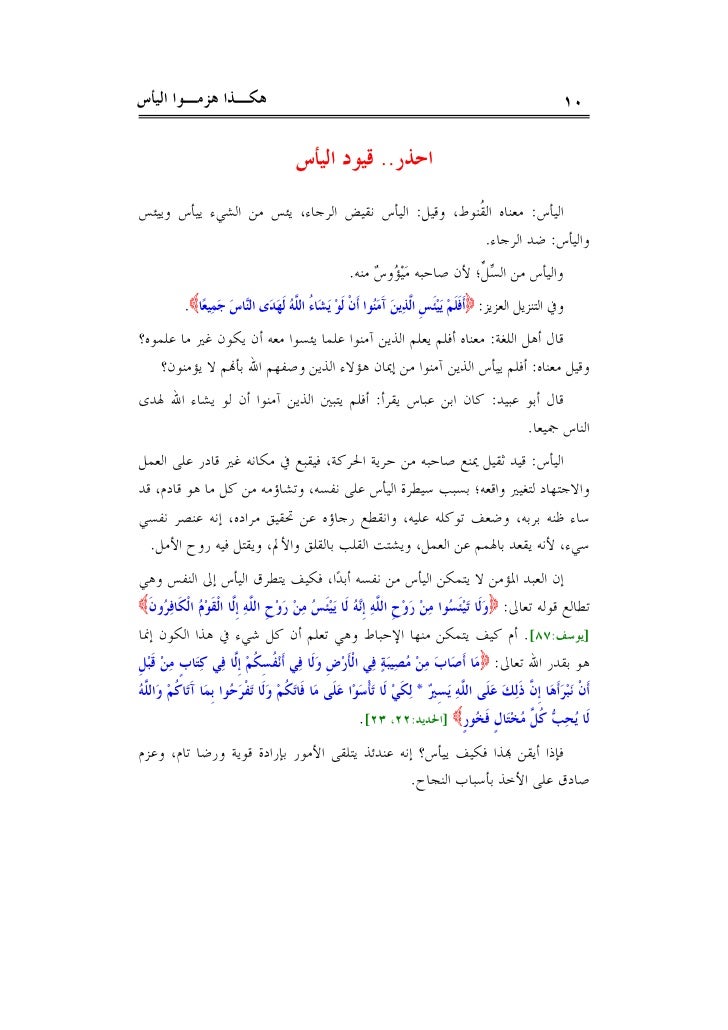 ١٠ هكـــذا هزمـــوا اليأس
احذر.. قيود اليأس
اليأس: معناه القُنوط، وقيل: اليأس نقيض الرجاء، يئس من الشيء ييأس وييئس
واليأس: ضد الرجاء.
واليأس من السِّلِّ؛ لأن صاحبه مَيْؤُوسٌ منه.
وفي التنزيل العزيز: ﴿أَفَلَمْ يَيْئَسِ الَّذِينَ آمَنُوا أَنْ لَوْ يَشَاءُ اللَّهُ لَهَدَى النَّاسَ جَمِيعًا﴾.
قال أهل اللغة: معناه أفلم يعلم الذين آمنوا علما يئسوا معه أن يكون غير ما علموه؟
وقيل معناه: أفلم ييأس الذين آمنوا من إيمان هؤلاء الذين وصفهم الله بأنهم لا يؤمنون؟
قال أبو عبيد: كان ابن عباس يقرأ: أفلم يتبين الذين آمنوا أن لو يشاء الله لهدى
الناس جميعا.
اليأس: قيد ثقيل يمنع صاحبه من حرية الحركة، فيقبع في مكانه غير قادر على العمل
والاجتهاد لتغيير واقعه؛ بسبب سيطرة اليأس على نفسه، وتشاؤمه من كل ما هو قادم، قد
ساء ظنه بربه، وضعف توكله عليه، وانقطع رجاؤه عن تحقيق مراده، إنه عنصر نفسي
سيء، لأنه يقعد بالهمم عن العمل، ويشتت القلب بالقلق والألم، ويقتل فيه روح الأمل.
إن العبد المؤمن لا يتمكن اليأس من نفسه أبدًا، فكيف يتطرق اليأس إلى النفس وهي
تطالع قوله تعالى: ﴿وَلَا تَيْئَسُوا مِنْ رَوْحِ اللَّهِ إِنَّهُ لَا يَيْئَسُ مِنْ رَوْحِ اللَّهِ إِلَّا الْقَوْمُ الْكَافِرُونَ﴾
[يوسف:٨٧]. أم كيف يتمكن منها الإحباط وهي تعلم أن كل شيء في هذا الكون إنما
هو بقدر الله تعالى: ﴿مَا أَصَابَ مِنْ مُصِيبَةٍ فِي الْأَرْضِ وَلَا فِي أَنْفُسِكُمْ إِلَّا فِي كِتَابٍ مِنْ قَبْلِ
أَنْ نَبْرَأَهَا إِنَّ ذَلِكَ عَلَى اللَّهِ يَسِيرٌ * لِكَيْ لَا تَأْسَوْا عَلَى مَا فَاتَكُمْ وَلَا تَفْرَحُوا بِمَا آتَاكُمْ وَاللَّهُ
لَا يُحِبُّ كُلَّ مُخْتَالٍ فَخُورٍ﴾ [الحديد:٢٢، ٢٣].
فإذا أيقن بهذا فكيف ييأس؟ إنه عندئذ يتلقى الأمور بإرادة قوية ورضا تام، وعزم
صادق على الأخذ بأسباب النجاح.